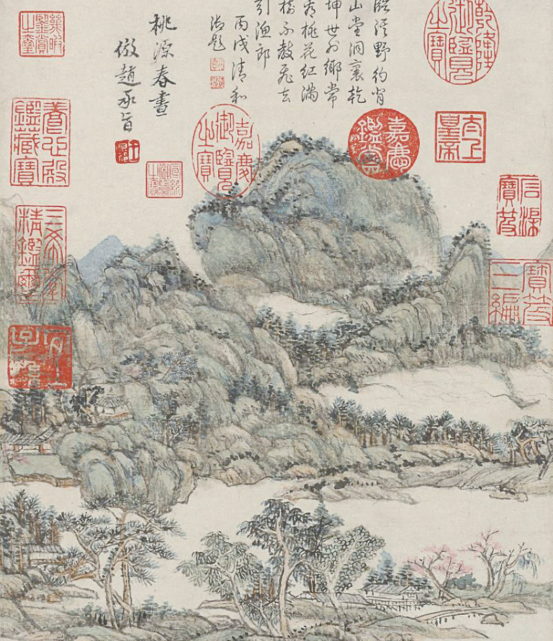 乾隆御覽之寶
太上皇帝
石渠寶笈
寶笈三編
嘉慶鑑賞
溪野
山堂洞裏乾
坤世外鄉常
看桃花紅滿
不教飛去
引漁郎
丙戌清和
御題
嘉慶御覽之寶
桃源春晝
倣趙承旨
幾暇鑒賞之璽
養心殿鑑藏寶
三希堂精鑑璽
宜子孫